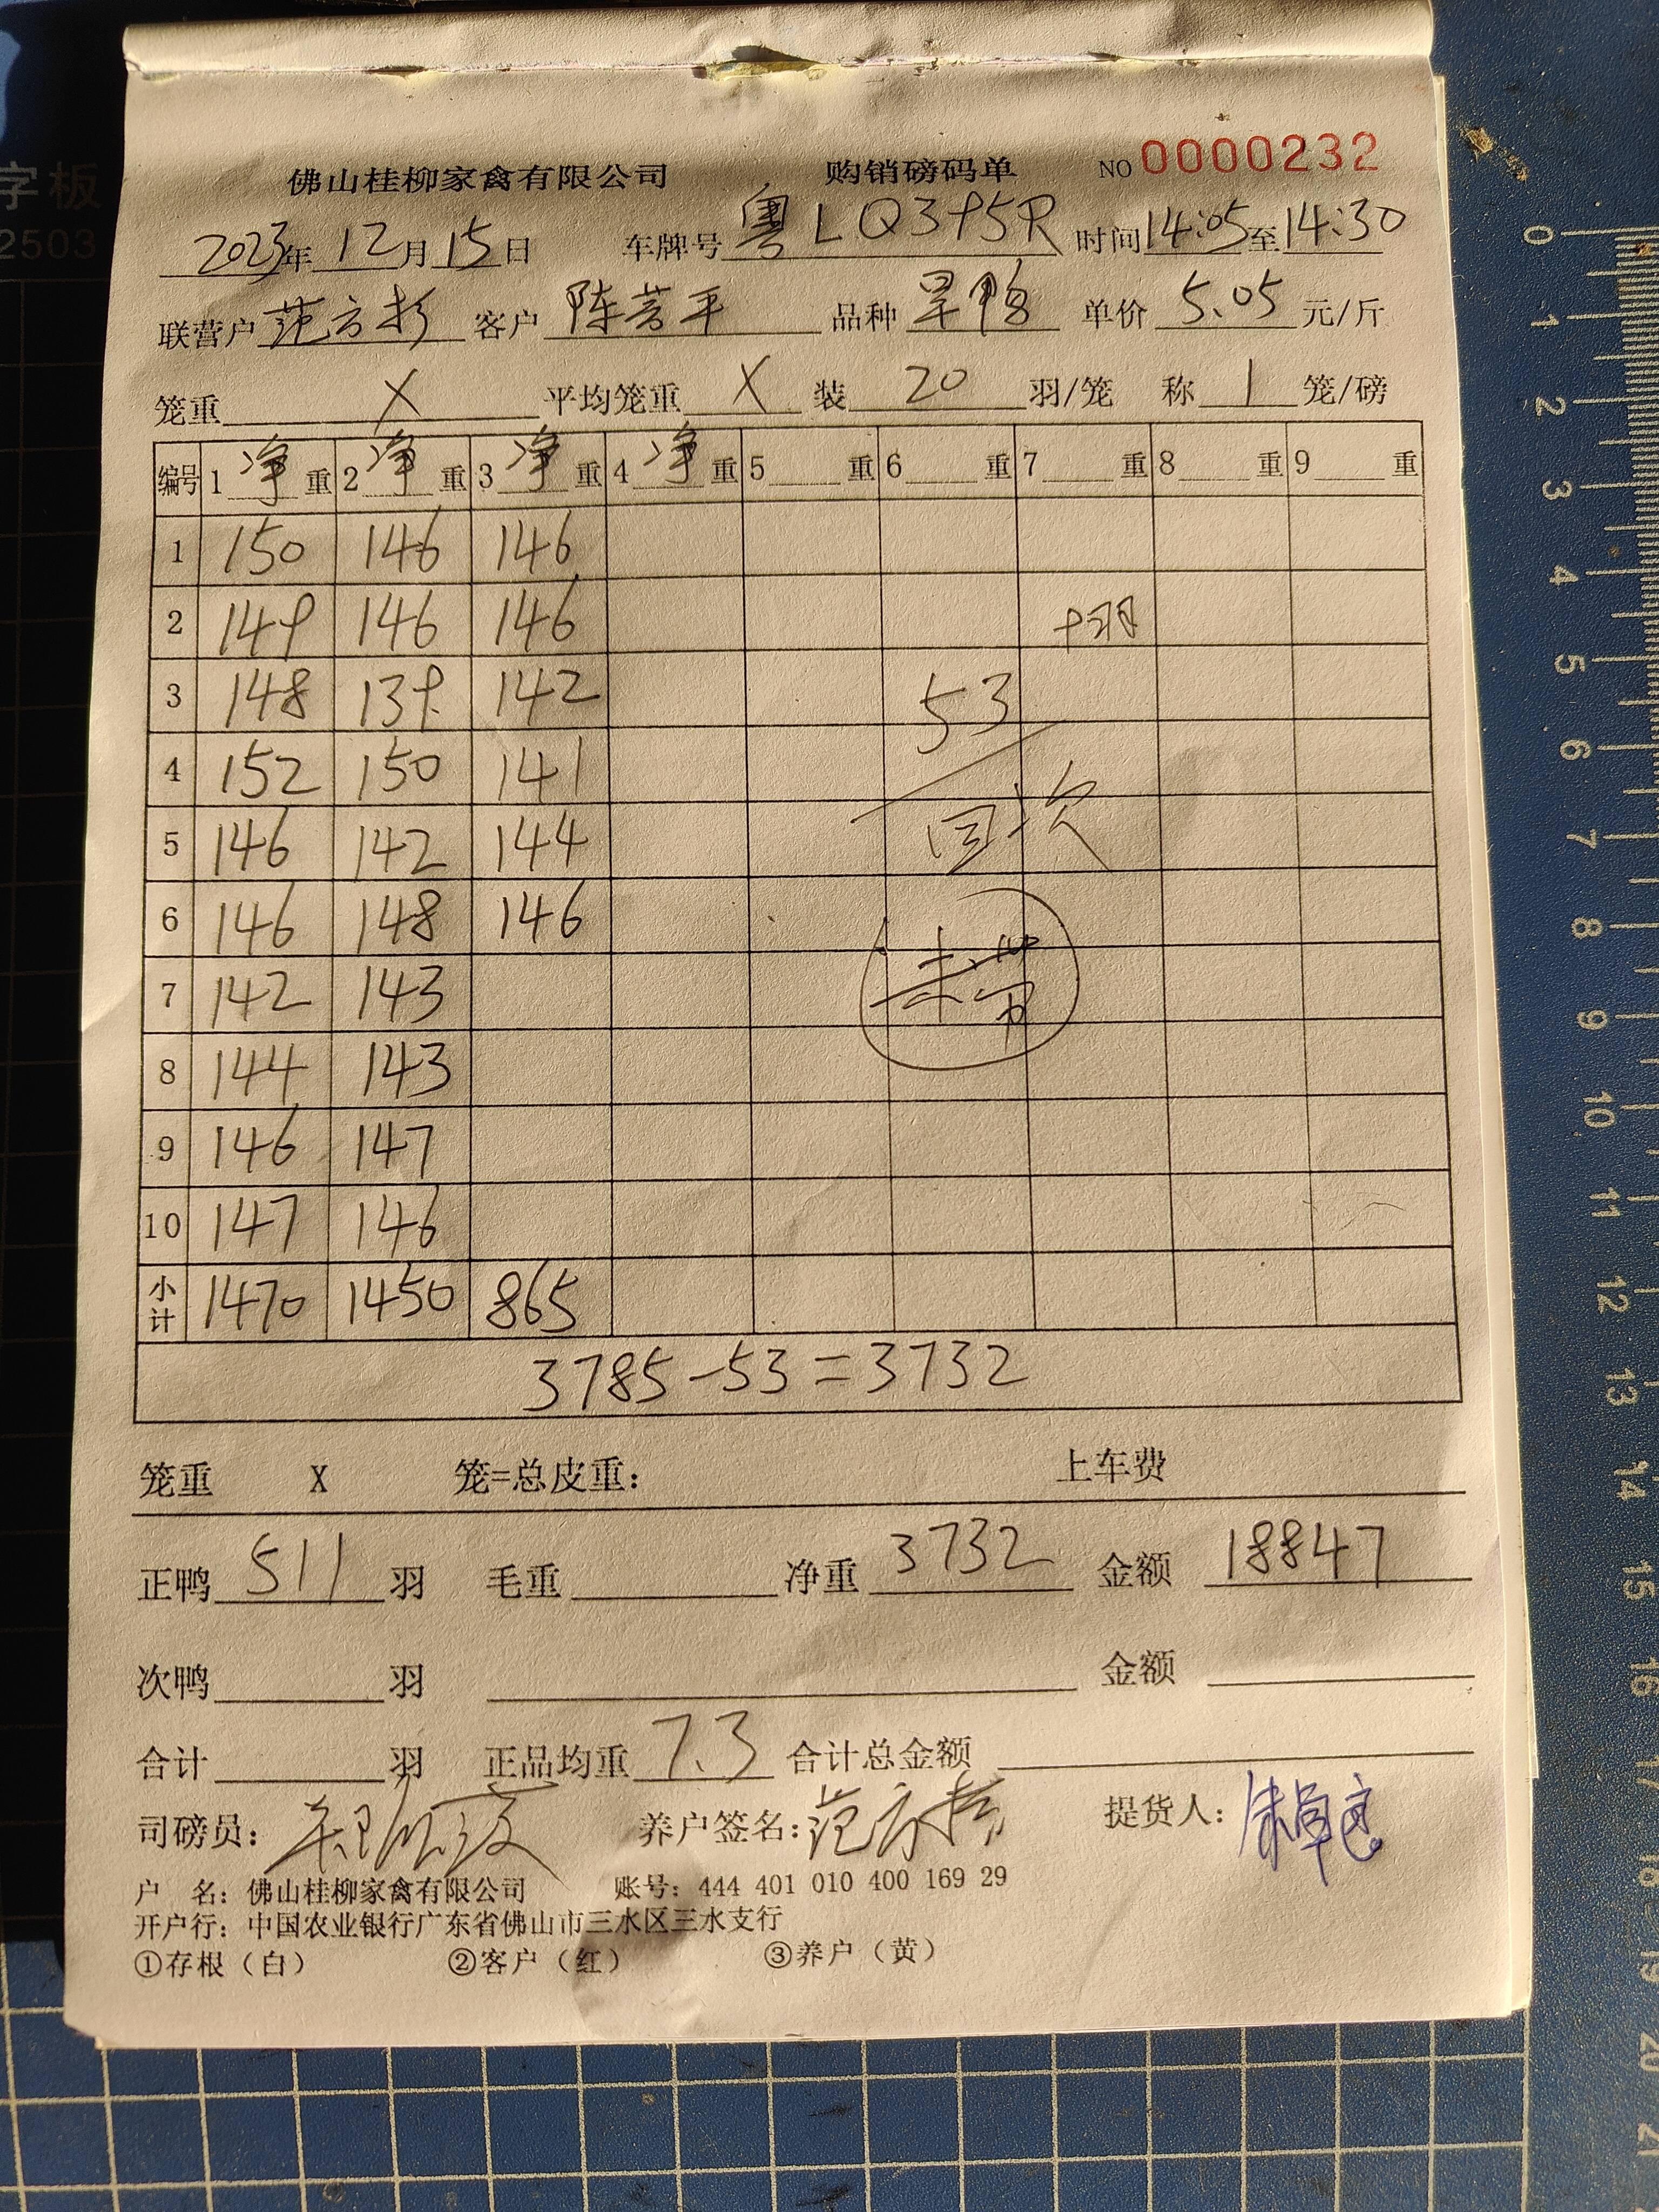 字板
2503
佛山桂柳家禽有限公司 购销磅码单 NO 0000232
2023年 12月 15日 车牌号 粤LQ395R 时间 14:05 至 14:30
联营户 范方彬 客户 陈芳平 品种 旱鸭 单价 5.05 元/斤
笼重 X 平均笼重 X 装 20 羽/笼 称 1 笼/磅
编号 1 净 重 2 净 重 3 净 重 4 净 重 5 重 6 重 7 重 8 重 9 重
1 150 146 146
2 149 146 146
3 148 139 142 53
4 152 150 141
5 146 142 144 回次
6 146 148 146
7 142 143 未带
8 144 143
9 146 147
10 147 146
小计 1470 1450 865
3785-53=3732
笼重 X 笼=总皮重: 上车费
正鸭 511 羽 毛重 净重 3732 金额 18847
次鸭 羽 金额
合计 羽 正品均重 7.3 合计总金额
司磅员: 养户签名: 范方彬 提货人:
户 名: 佛山桂柳家禽有限公司 账号: 444 401 010 400 169 29
开户行: 中国农业银行广东省佛山市三水区三水支行
①存根（白） ②客户（红） ③养户（黄）
0
1
2
3
4
5
6
7
8
9
10
11
12
13
14
15
16
17
18
19
20
21